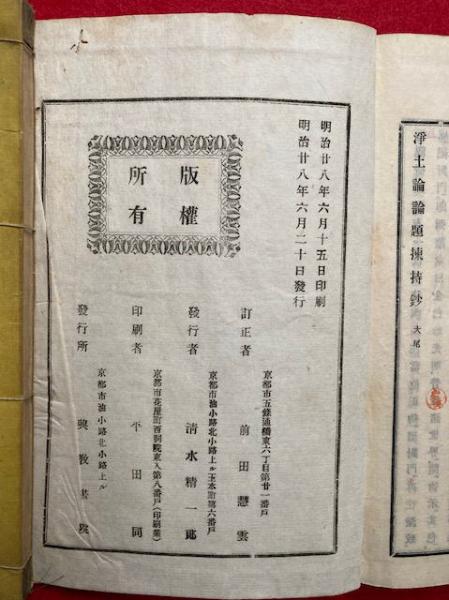 淨土論論題揀持鈔 大尾
明治廿八年六月十五日印刷
明治廿八年六月二十日發行
版權
所有
訂正者
京都市五條通橋東六丁目第廿一番戸
前田慧雲
發行者
京都市油小路北小路上ル玉本町第六番戸
清水精一郎
印刷者
京都市花屋町西洞院東入第八番戸(印刷業)
平田同
發行所
京都市油小路北小路上ル
興教書院